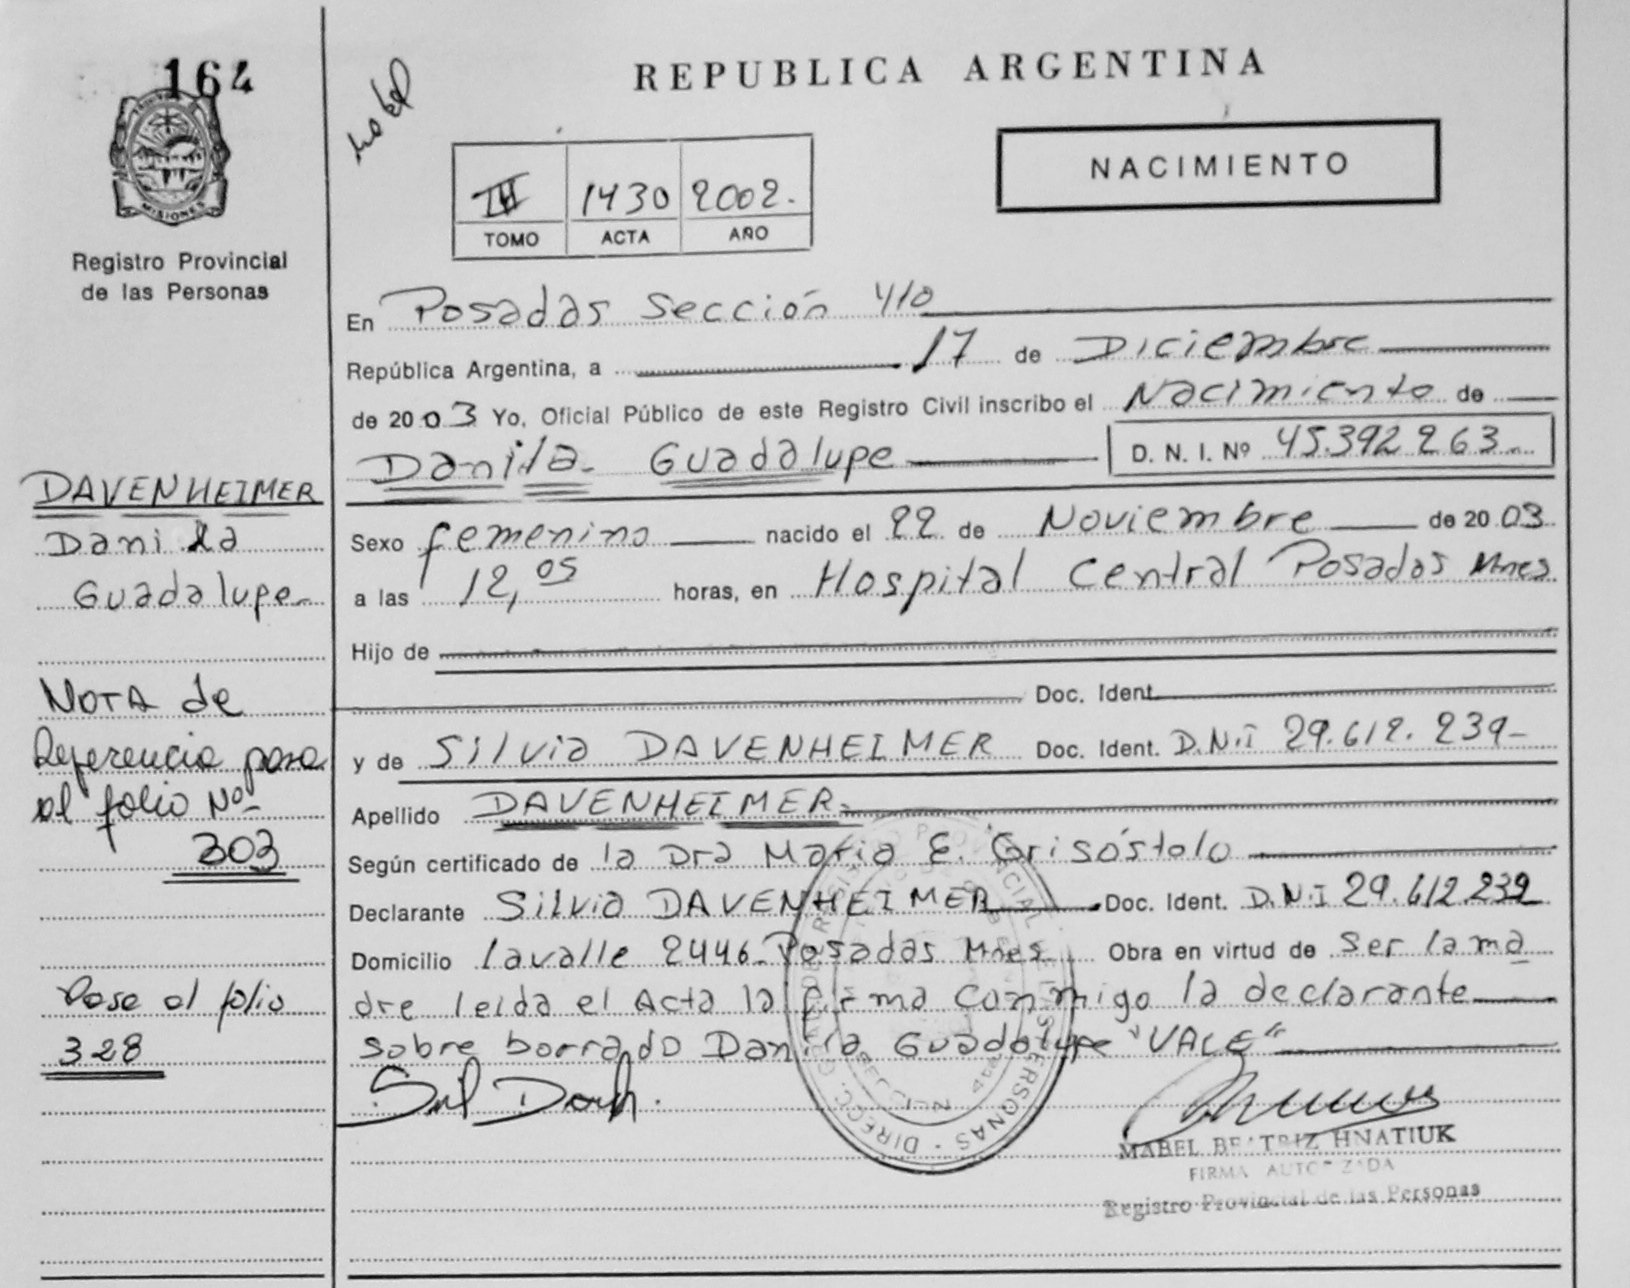 164
MISIONES
Registro Provincial
de las Personas
DAVENHEIMER
Danila
Guadalupe
NOTA de
Referencia pasa
al folio Nº
303
Pase al folio
328
REPUBLICA ARGENTINA
NACIMIENTO
III 1430 2002.
TOMO ACTA AÑO
En Posadas Sección 4ta
República Argentina, a 17 de Diciembre
de 2003 Yo, Oficial Público de este Registro Civil inscribo el Nacimiento de
Danila Guadalupe D. N. I. Nº 45.392.263
Sexo femenino nacido el 22 de Noviembre de 2003
a las 12,05 horas, en Hospital Central Posadas Mnes
Hijo de
Doc. Ident.
y de Silvia DAVENHEIMER Doc. Ident. D.N.I 29.612.239-
Apellido DAVENHEIMER
Según certificado de la Dra Maria E. Grisóstolo
Declarante Silvia DAVENHEIMER Doc. Ident. D.N.I 29.612.239
Domicilio Lavalle 2446- Posadas Mnes Obra en virtud de Ser la ma
dre leida el Acta la firma conmigo la declarante
sobre borrado Danila Guadalupe "VALE"
MABEL BEATRIZ HNATIUK
FIRMA AUTORIZADA
Registro Provincial de las Personas